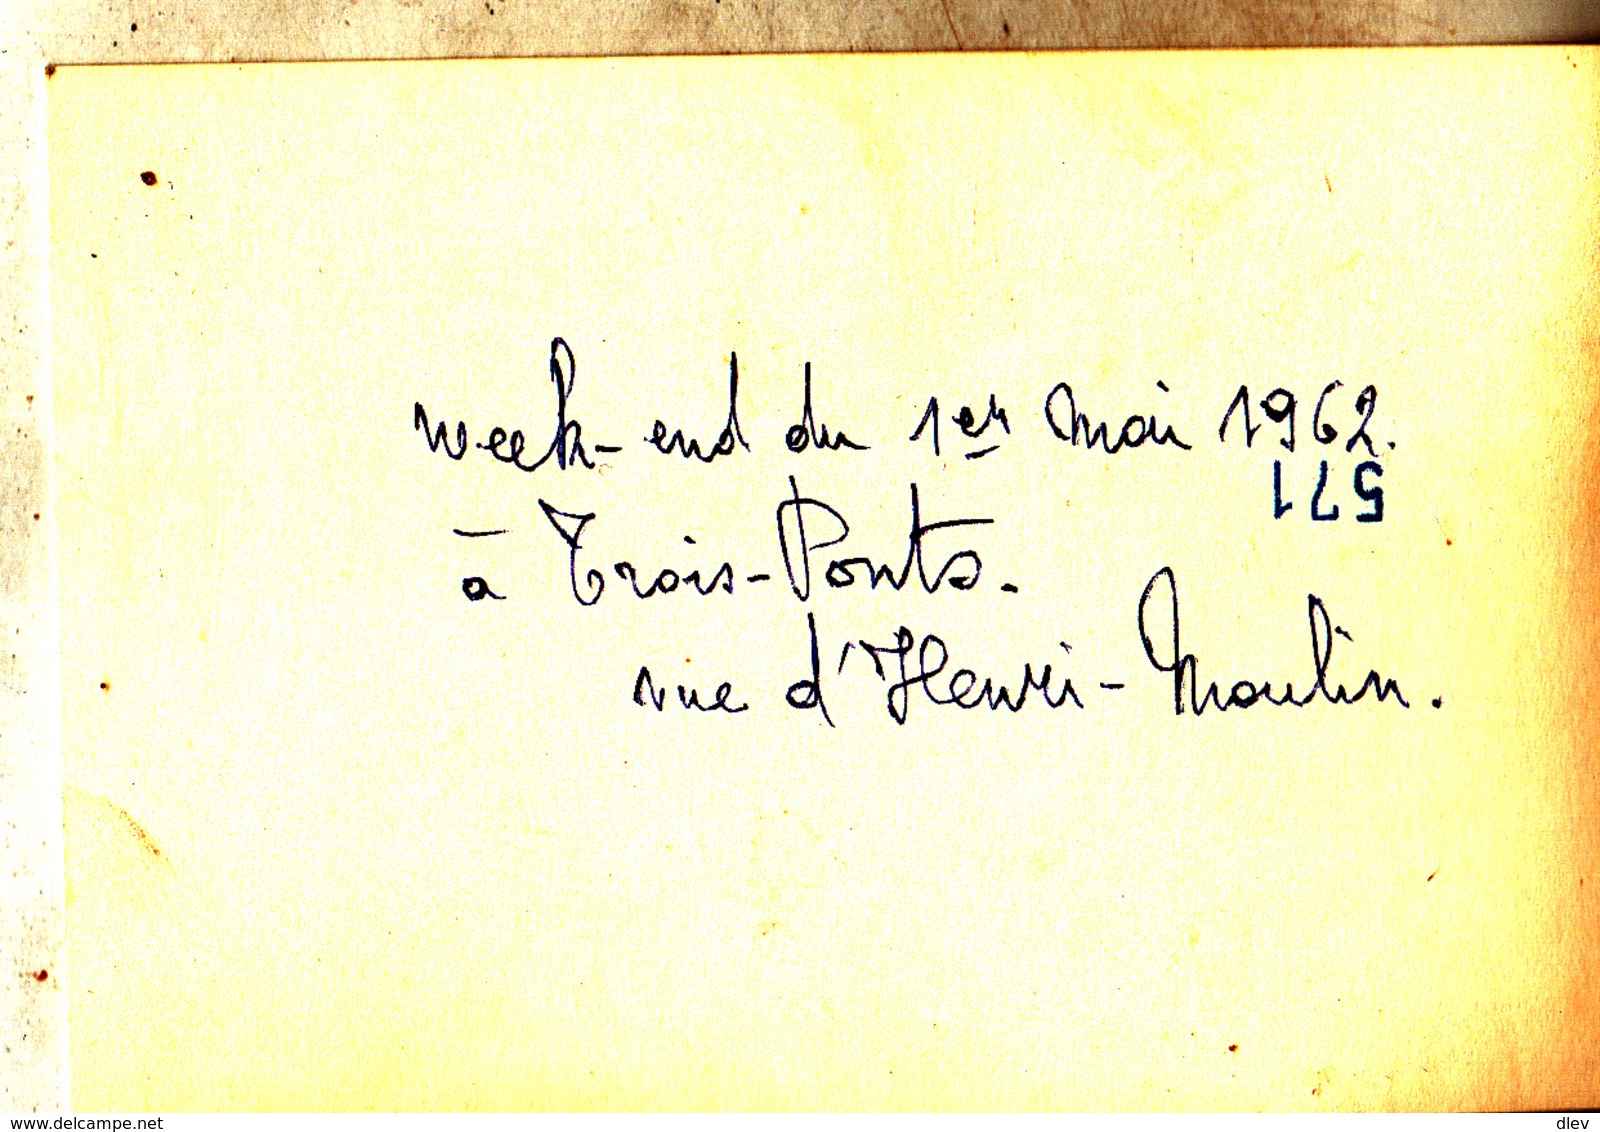 week-end du 1er mai 1962.
571
à Trois-Ponts.
vue d'Henri-Moulin.
www.delcampe.net
dlev